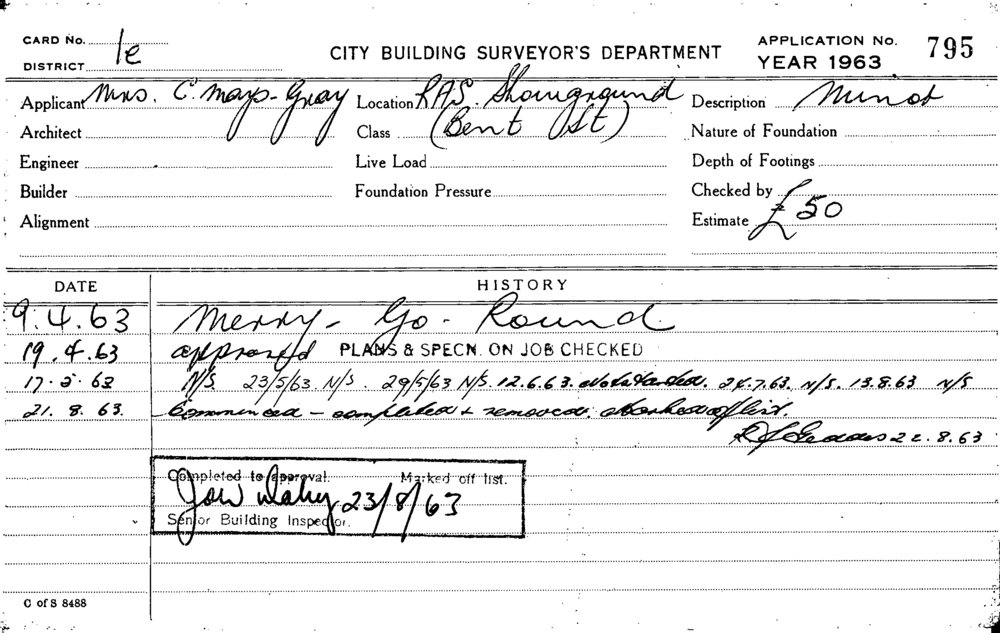 CARD No. 1e
DISTRICT
CITY BUILDING SURVEYOR'S DEPARTMENT
APPLICATION No. 795
YEAR 1963
Applicant Mrs. C. Mays-Gray Location RAS. Showground Description Minor
Architect Class (Bent St) Nature of Foundation
Engineer Live Load Depth of Footings
Builder Foundation Pressure Checked by
Alignment Estimate £50
DATE HISTORY
9.4.63 Merry-Go-Round
19.4.63 approved PLANS & SPECN. ON JOB CHECKED
17.5.63 N/S. 23/5/63 N/S. 29/5/63 N/S. 12.6.63. Not started. 24.7.63. N/S. 13.8.63 N/S
21.8.63. Commenced - completed & removed. Marked off list.
22.8.63
Completed to approval. Marked off list.
23/8/63
Senior Building Inspector.
C of S 8488